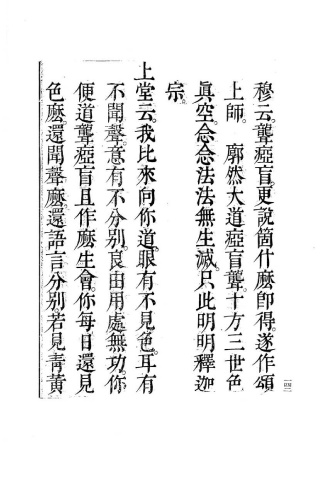 穆云。聾瘂盲。更說箇什麼卽得。遂作頌
上師。廓然大道瘂盲聾。十方三世色
眞空。念念法法無生滅。只此明明釋迦
宗。
上堂云。我比來向你道。眼有不見色。耳有
不聞聲。意有不分别。良由用處無功。你
便道聾瘂盲且作麼生會。你每日還見
色麼。還聞聲麼。還語言分别。若見靑黃
一四三